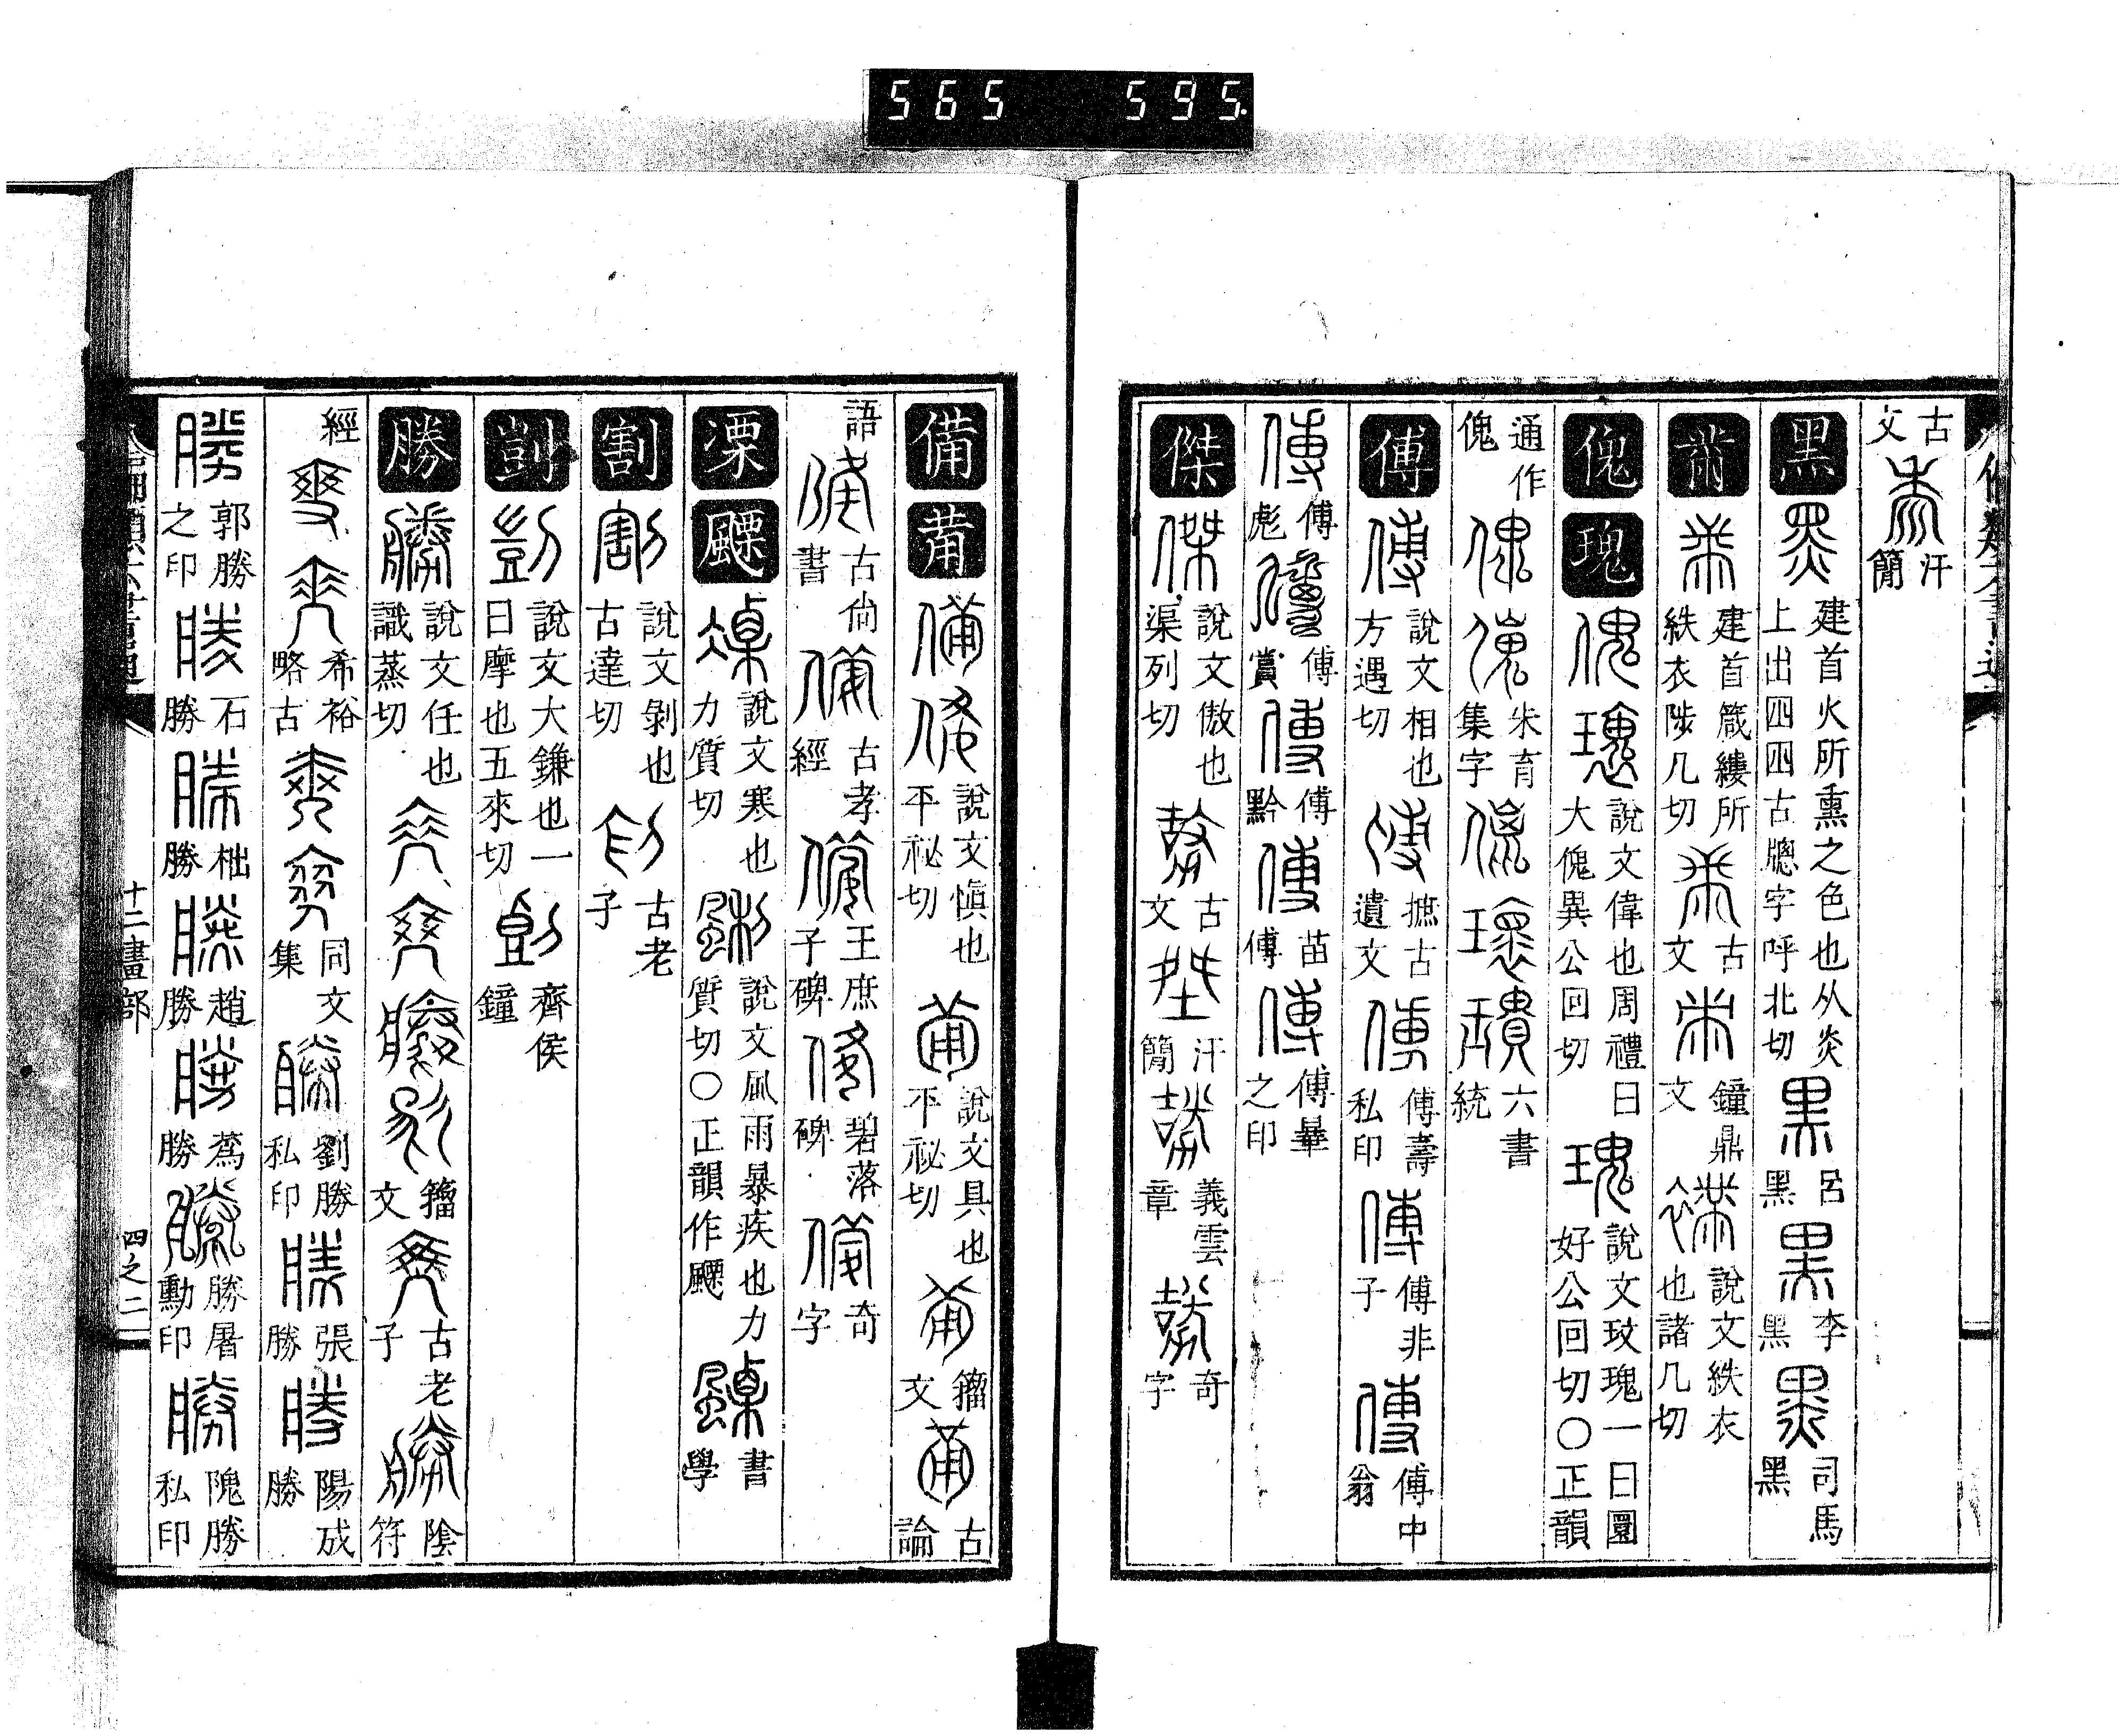 565 595
古文 汗簡
黑 建首火所熏之色也从炎上出四四古牕字呼北切 呂黑 李黑 司馬黑
黹 建首箴縷所紩衣陟几切 古文 鐘鼎文 說文紩衣也諸几切
傀 瑰 說文偉也周禮曰大傀異公回切 說文玟瑰一曰圜好公回切〇正韻
通作傀 朱育集字 六書統
傅 說文相也方遇切 摭古遺文 傅壽私印 傅非子 傅中翁
傅彪 傅賞 傅黔 苗傅 傅畢之印
傑 說文傲也渠列切 古文 汗簡 義雲章 奇字
備 𤰈 說文慎也平祕切 說文具也平祕切 籀文 古論
語 古尙書 古孝經 王庶子碑 碧落碑 奇字
凓 飃 說文寒也力質切 說文風雨暴疾也力質切〇正韻作 書學
割 說文剝也古達切 古老子
剴 說文大鎌也一曰摩也五來切 齊侯鐘
勝 說文任也識蒸切 籀文 古老子 陰符
經 希裕略古 同文集 劉勝私印 張勝 陽成勝
郭勝之印 石勝 枇勝 趙勝 蔿勝 勝屠勳印 隗勝私印
十二畫部 四之二